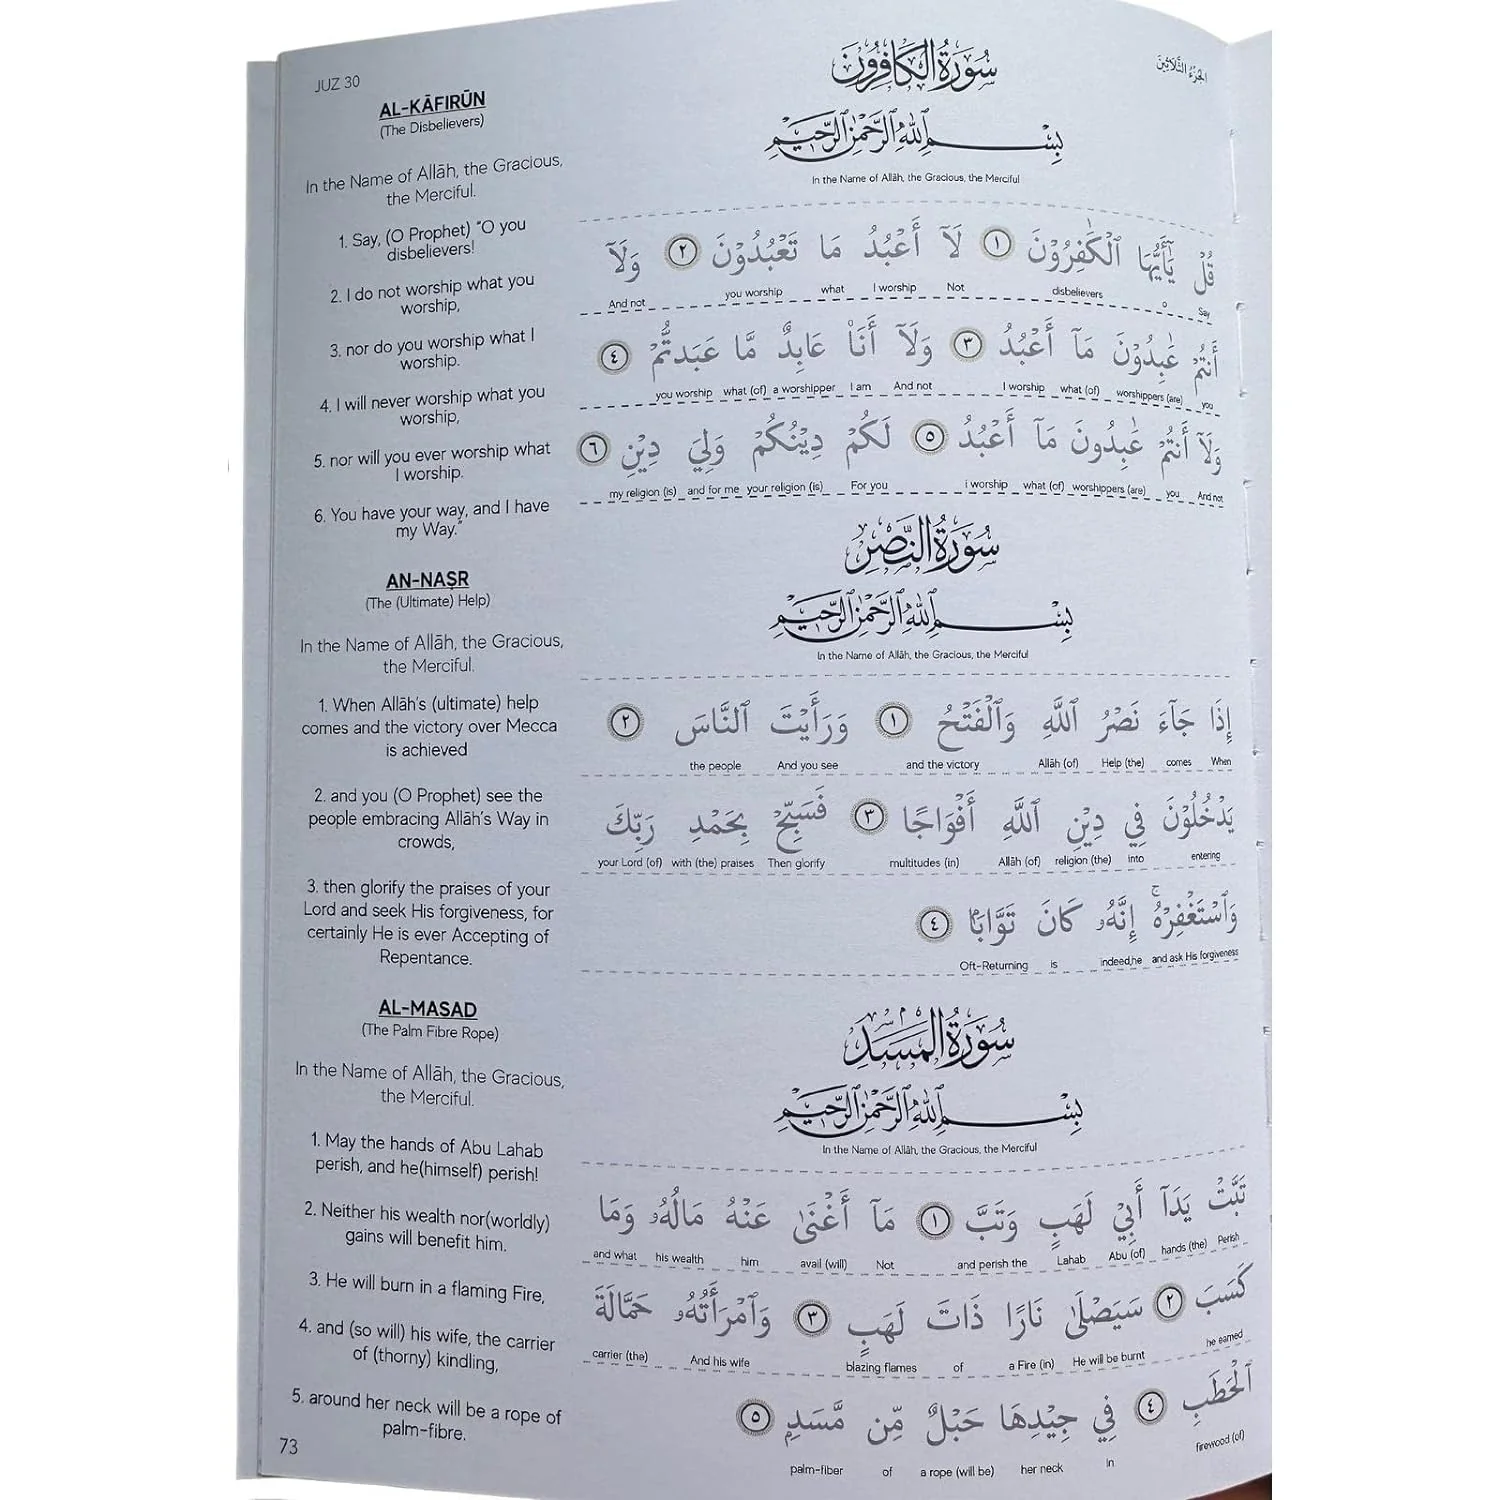 JUZ 30
AL-KĀFIRŪN
(The Disbelievers)
In the Name of Allāh, the Gracious,
the Merciful.
1. Say, (O Prophet) "O you
disbelievers!
2. I do not worship what you
worship,
3. nor do you worship what I
worship.
4. I will never worship what you
worship,
5. nor will you ever worship what
I worship.
6. You have your way, and I have
my Way."
AN-NAṢR
(The (Ultimate) Help)
In the Name of Allāh, the Gracious,
the Merciful.
1. When Allāh's (ultimate) help
comes and the victory over Mecca
is achieved
2. and you (O Prophet) see the
people embracing Allāh's Way in
crowds,
3. then glorify the praises of your
Lord and seek His forgiveness, for
certainly He is ever Accepting of
Repentance.
AL-MASAD
(The Palm Fibre Rope)
In the Name of Allāh, the Gracious,
the Merciful.
1. May the hands of Abu Lahab
perish, and he(himself) perish!
2. Neither his wealth nor(worldly)
gains will benefit him.
3. He will burn in a flaming Fire,
4. and (so will) his wife, the carrier
of (thorny) kindling,
5. around her neck will be a rope of
palm-fibre.
73
الجُزْءُ الثَّلَاثِينَ
سُورَةُ الكَافِرُونَ
بِسْمِ ٱللَّهِ ٱلرَّحْمَٰنِ ٱلرَّحِيمِ
In the Name of Allāh, the Gracious, the Merciful
قُلْ يَٰٓأَيُّهَا ٱلْكَٰفِرُوْنَ ١ لَآ أَعْبُدُ مَا تَعْبُدُوْنَ ٢ وَلَآ
And not you worship what I worship Not disbelievers O Say
أَنتُمْ عَٰبِدُوْنَ مَآ أَعْبُدُ ٣ وَلَآ أَنَا۠ عَابِدٌ مَّا عَبَدتُّمْ ٤
you worship what (of) a worshipper I am And not I worship what (of) worshippers (are) you
وَلَآ أَنتُمْ عَٰبِدُونَ مَآ أَعْبُدُ ٥ لَكُمْ دِيْنُكُمْ وَلِيَ دِيْنِ ٦
my religion (is) and for me your religion (is) For you i worship what (of) worshippers (are) you And not
سُورَةُ النَّصْرِ
بِسْمِ ٱللَّهِ ٱلرَّحْمَٰنِ ٱلرَّحِيمِ
In the Name of Allāh, the Gracious, the Merciful
إِذَا جَآءَ نَصْرُ ٱللَّهِ وَٱلْفَتْحُ ١ وَرَأَيْتَ ٱلنَّاسَ ٢
the people And you see and the victory Allāh (of) Help (the) comes When
يَدْخُلُوْنَ فِي دِيْنِ ٱللَّهِ أَفْوَاجًا ٣ فَسَبِّحْ بِحَمْدِ رَبِّكَ
your Lord (of) with (the) praises Then glorify multitudes (in) Allāh (of) religion (the) into entering
وَٱسْتَغْفِرْهُ ۚ إِنَّهُۥ كَانَ تَوَّابًۢا ٤
Oft-Returning is indeed,he and ask His forgiveness
سُورَةُ المَسَدِ
بِسْمِ ٱللَّهِ ٱلرَّحْمَٰنِ ٱلرَّحِيمِ
In the Name of Allāh, the Gracious, the Merciful
تَبَّتْ يَدَآ أَبِيْ لَهَبٍ وَتَبَّ ١ مَآ أَغْنَىٰ عَنْهُ مَالُهُۥ وَمَا
and what his wealth him avail (will) Not and perish the Lahab Abu (of) hands (the) Perish
كَسَبَ ٢ سَيَصْلَىٰ نَارًا ذَاتَ لَهَبٍ ٣ وَٱمْرَأَتُهُۥ حَمَّالَةَ
carrier (the) And his wife blazing flames of a Fire (in) He will be burnt he earned
ٱلْحَطَبِ ٤ فِي جِيْدِهَا حَبْلٌ مِّن مَّسَدٍۭ ٥
palm-fiber of a rope (will be) her neck in firewood (of)